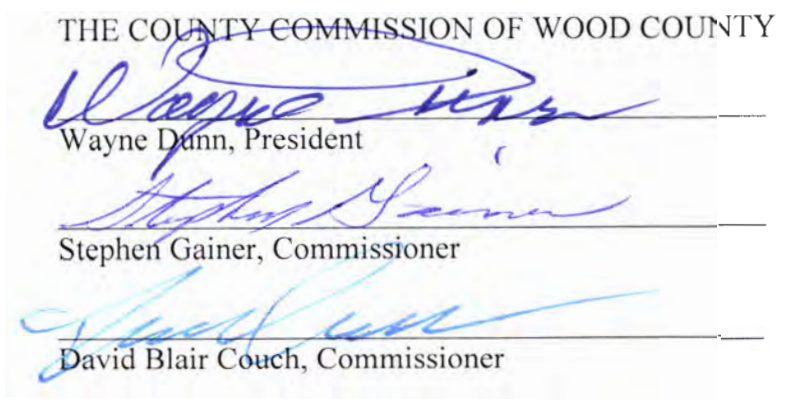 THE COUNTY COMMISSION OF WOOD COUNTY
Wayne Dunn
Wayne Dunn, President
Stephen Gainer
Stephen Gainer, Commissioner
David Blair Couch, Commissioner